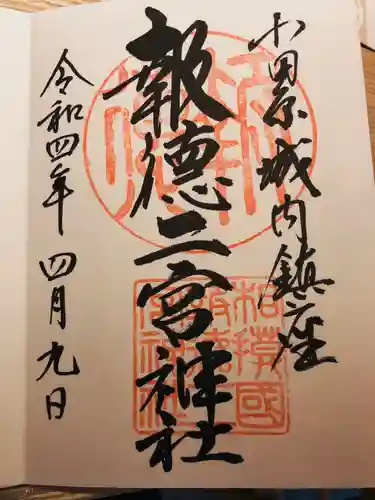 小田原城内鎮座
報徳二宮神社
令和四年 四月九日
相模國
報徳二
宮神社